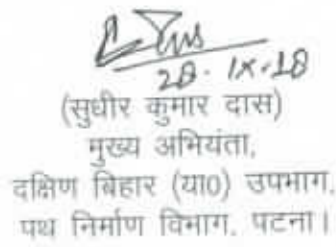 28.IX.18
(सुधीर कुमार दास)
मुख्य अभियंता,
दक्षिण बिहार (या0) उपभाग,
पथ निर्माण विभाग, पटना।